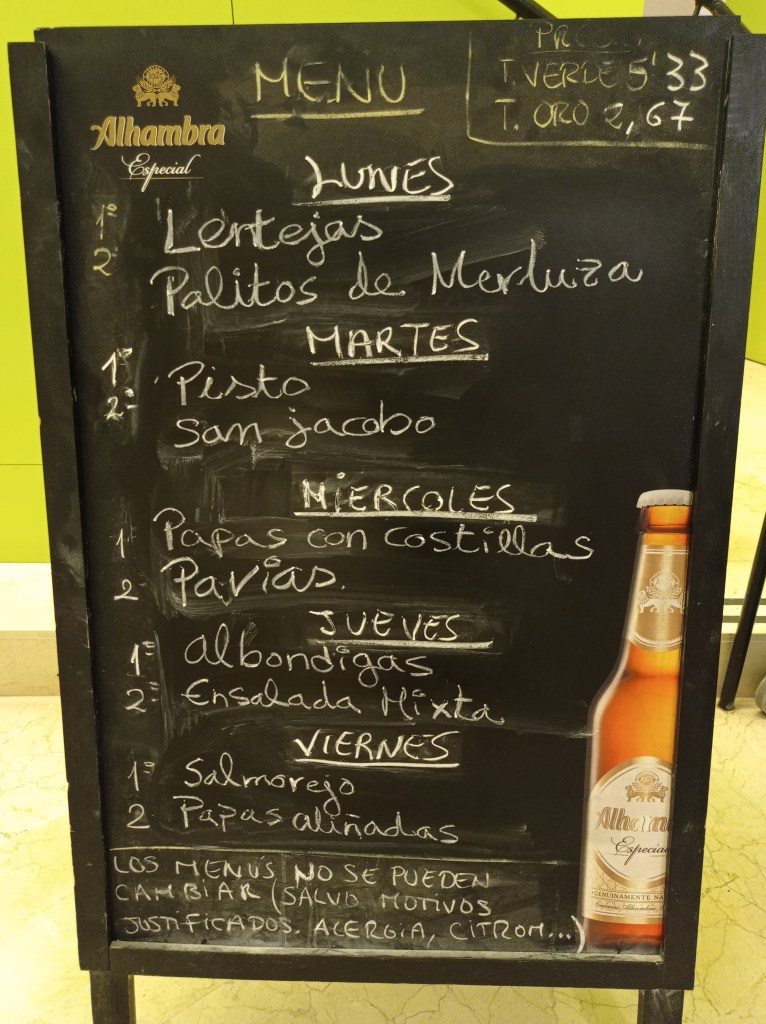 MENU
T. VERDE 5'33
T. ORO 2,67
Alhambra
Especial
LUNES
1º Lentejas
2º Palitos de Merluza
MARTES
1º Pisto
2º San jacobo
MIERCOLES
1 Papas con costillas
2 Pavias.
JUEVES
1º albondigas
2º Ensalada Mixta
VIERNES
1º Salmorejo
2 Papas aliñadas
LOS MENUS NO SE PUEDEN
CAMBIAR (SALVO MOTIVOS
JUSTIFICADOS. ALERGIA, CITROM...)
Especial
GENUINAMENTE